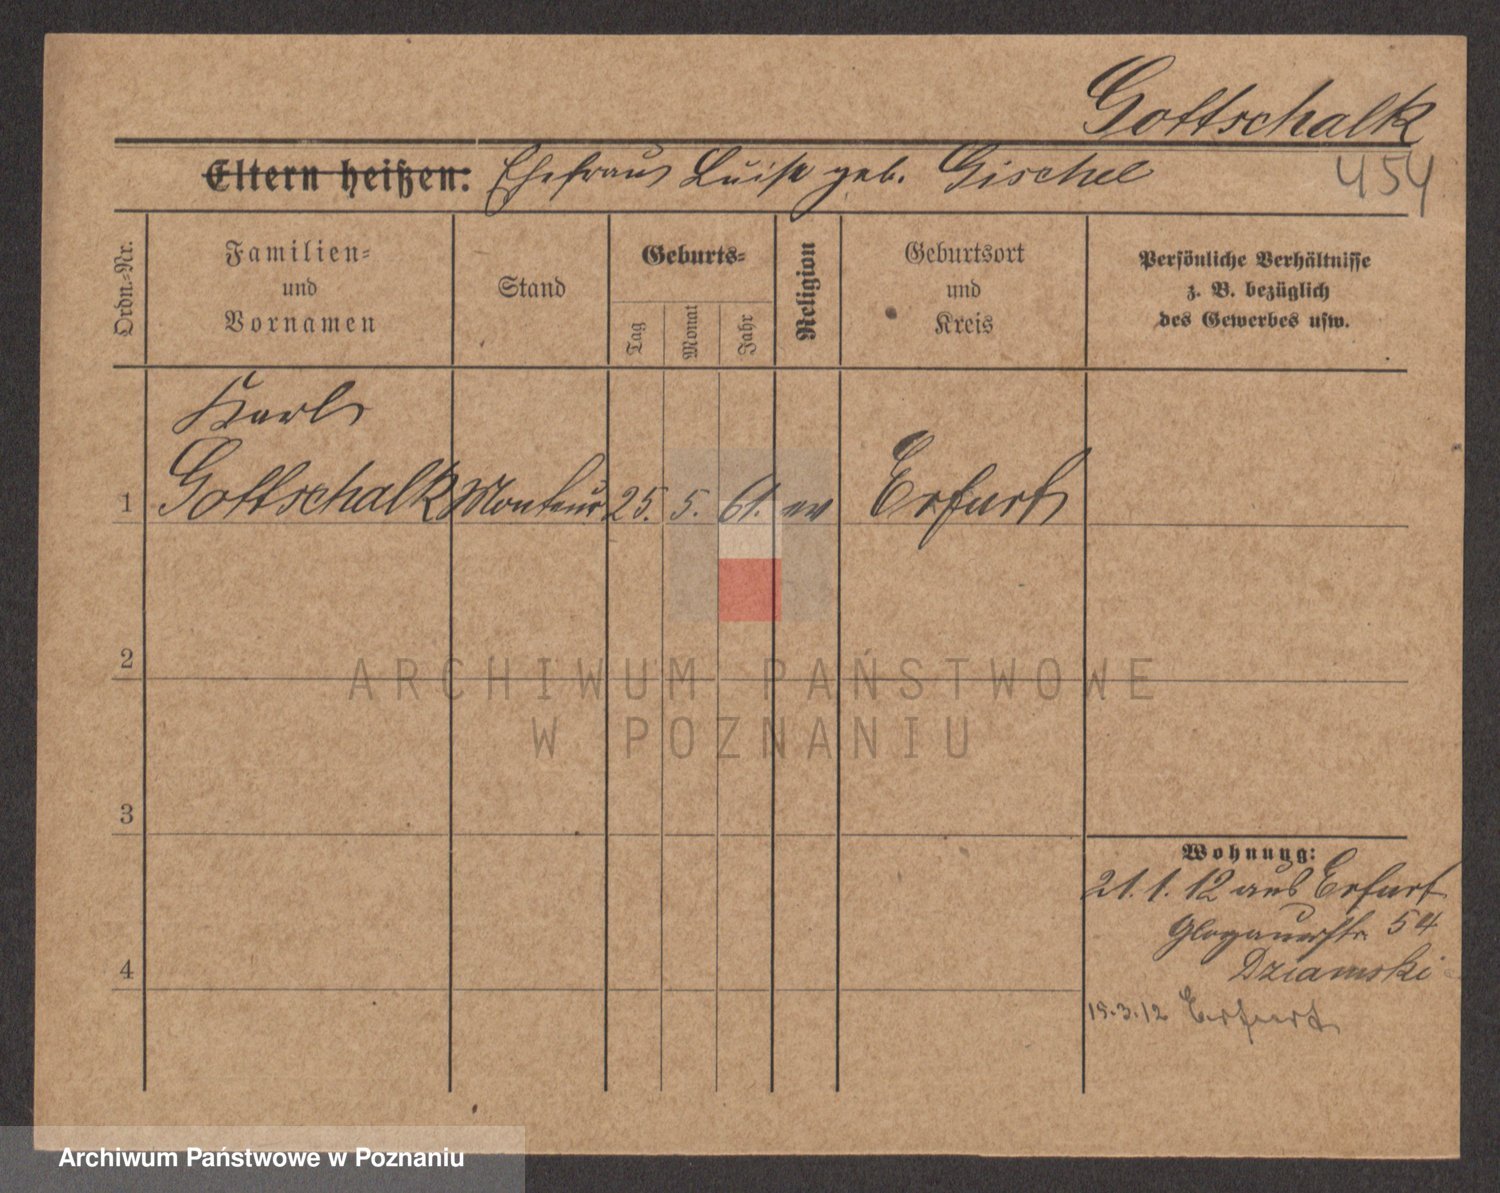 Gottschalk
454
Eltern heißen: Ehefrau Luise geb. Gischel
Ordn.-Nr.
Familien-
und
Vornamen
Stand
Geburts-
Tag
Monat
Jahr
Religion
Geburtsort
und
Kreis
Persönliche Verhältnisse
z. B. bezüglich
des Gewerbes usw.
Karl
1 Gottschalk Monteur 25. 5. 61. ev Erfurt
2
ARCHIWUM PAŃSTWOWE
W POZNANIU
3
Wohnung:
21.1.12 aus Erfurt
Glogauerstr. 54
Dziamski
4
19.3.12 Erfurt
Archiwum Państwowe w Poznaniu